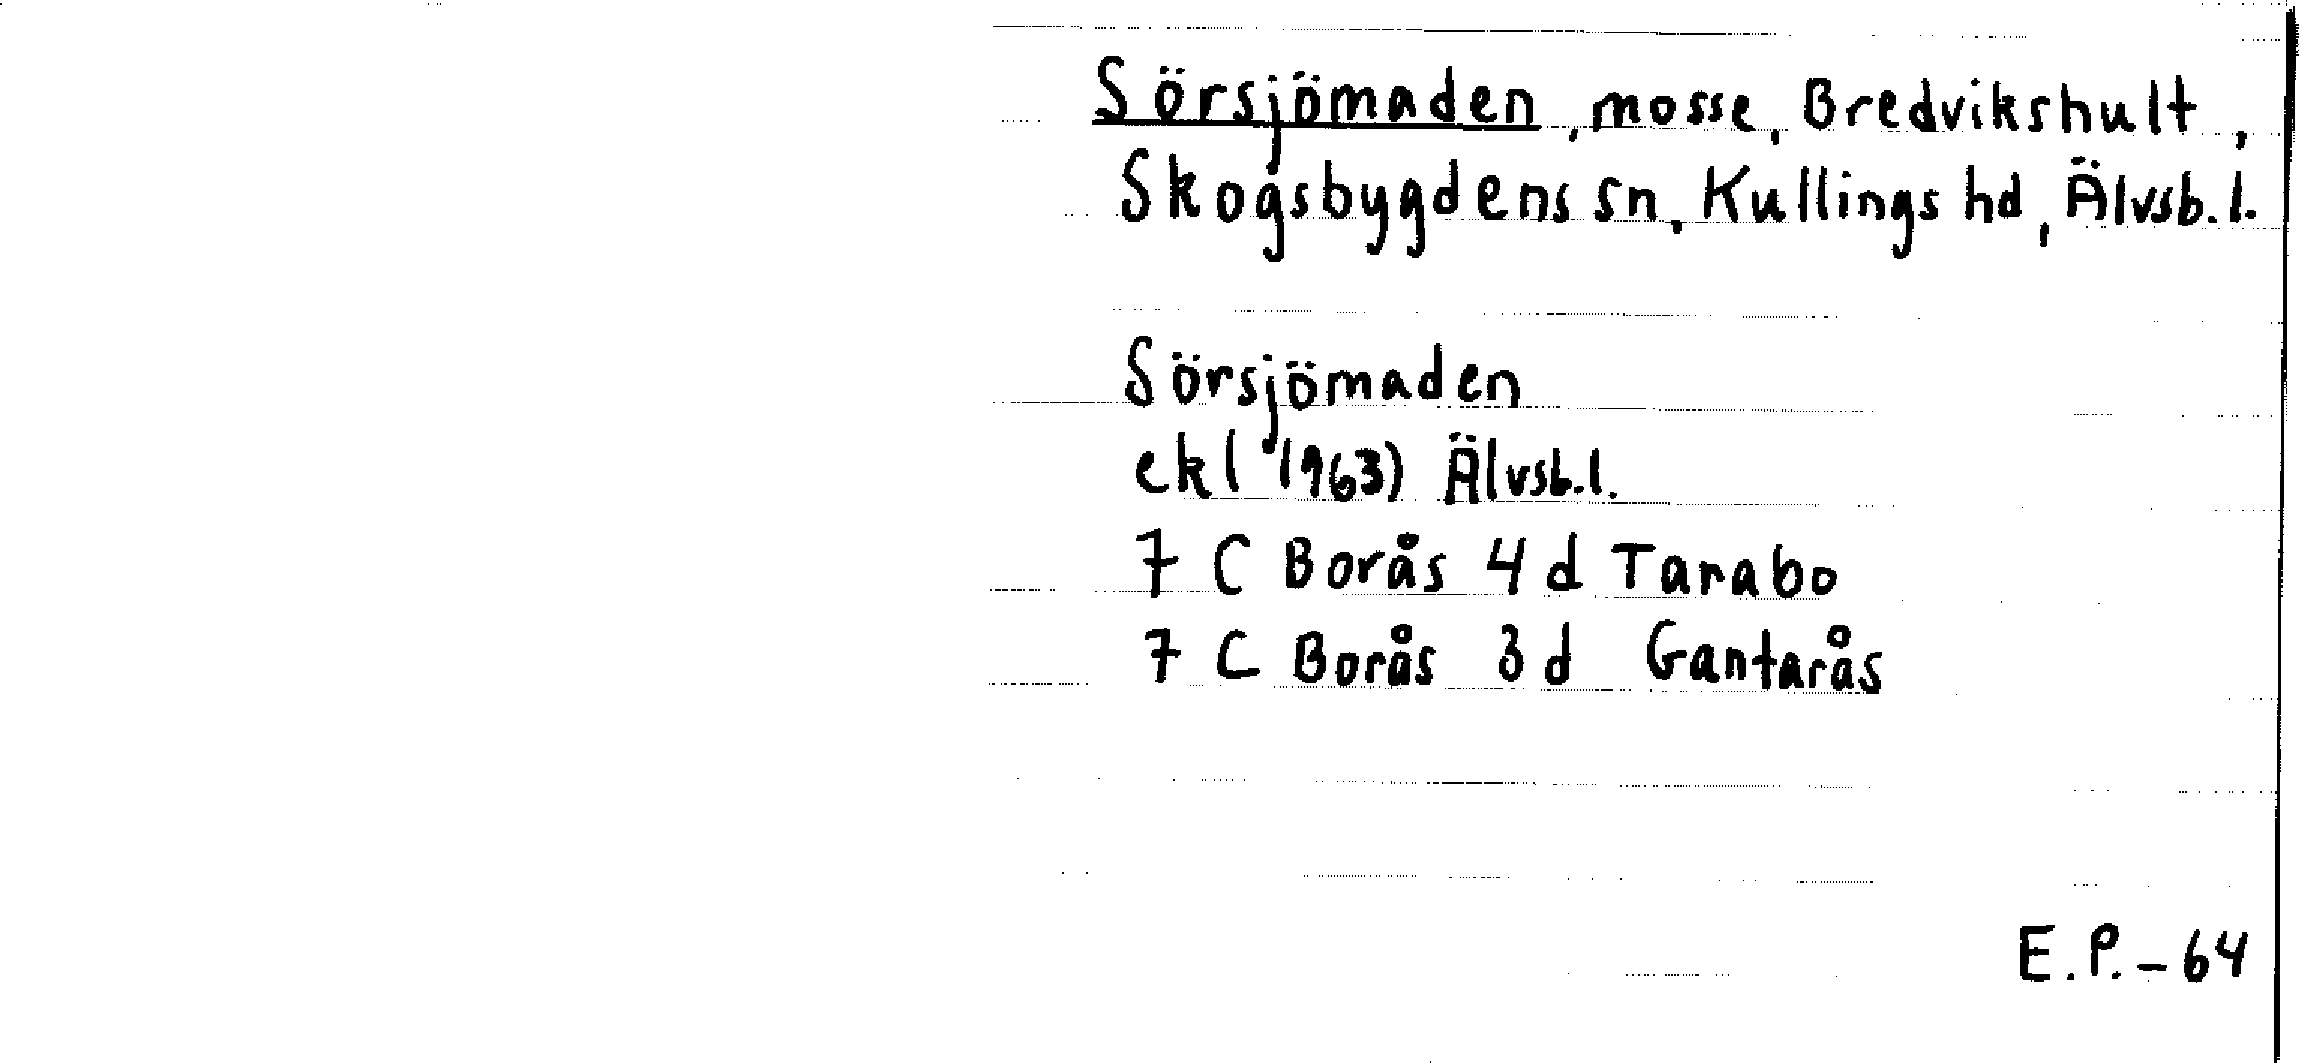 Sörsjömaden, mosse, Bredvikshult,
Skogsbygdens sn, Kullings hd, Älvsb. l.
Sörsjömaden
ekl (1963) Älvsb. l.
7 C Borås 4 d Tarabo
7 C Borås 3 d Gantarås
E.P. - 64